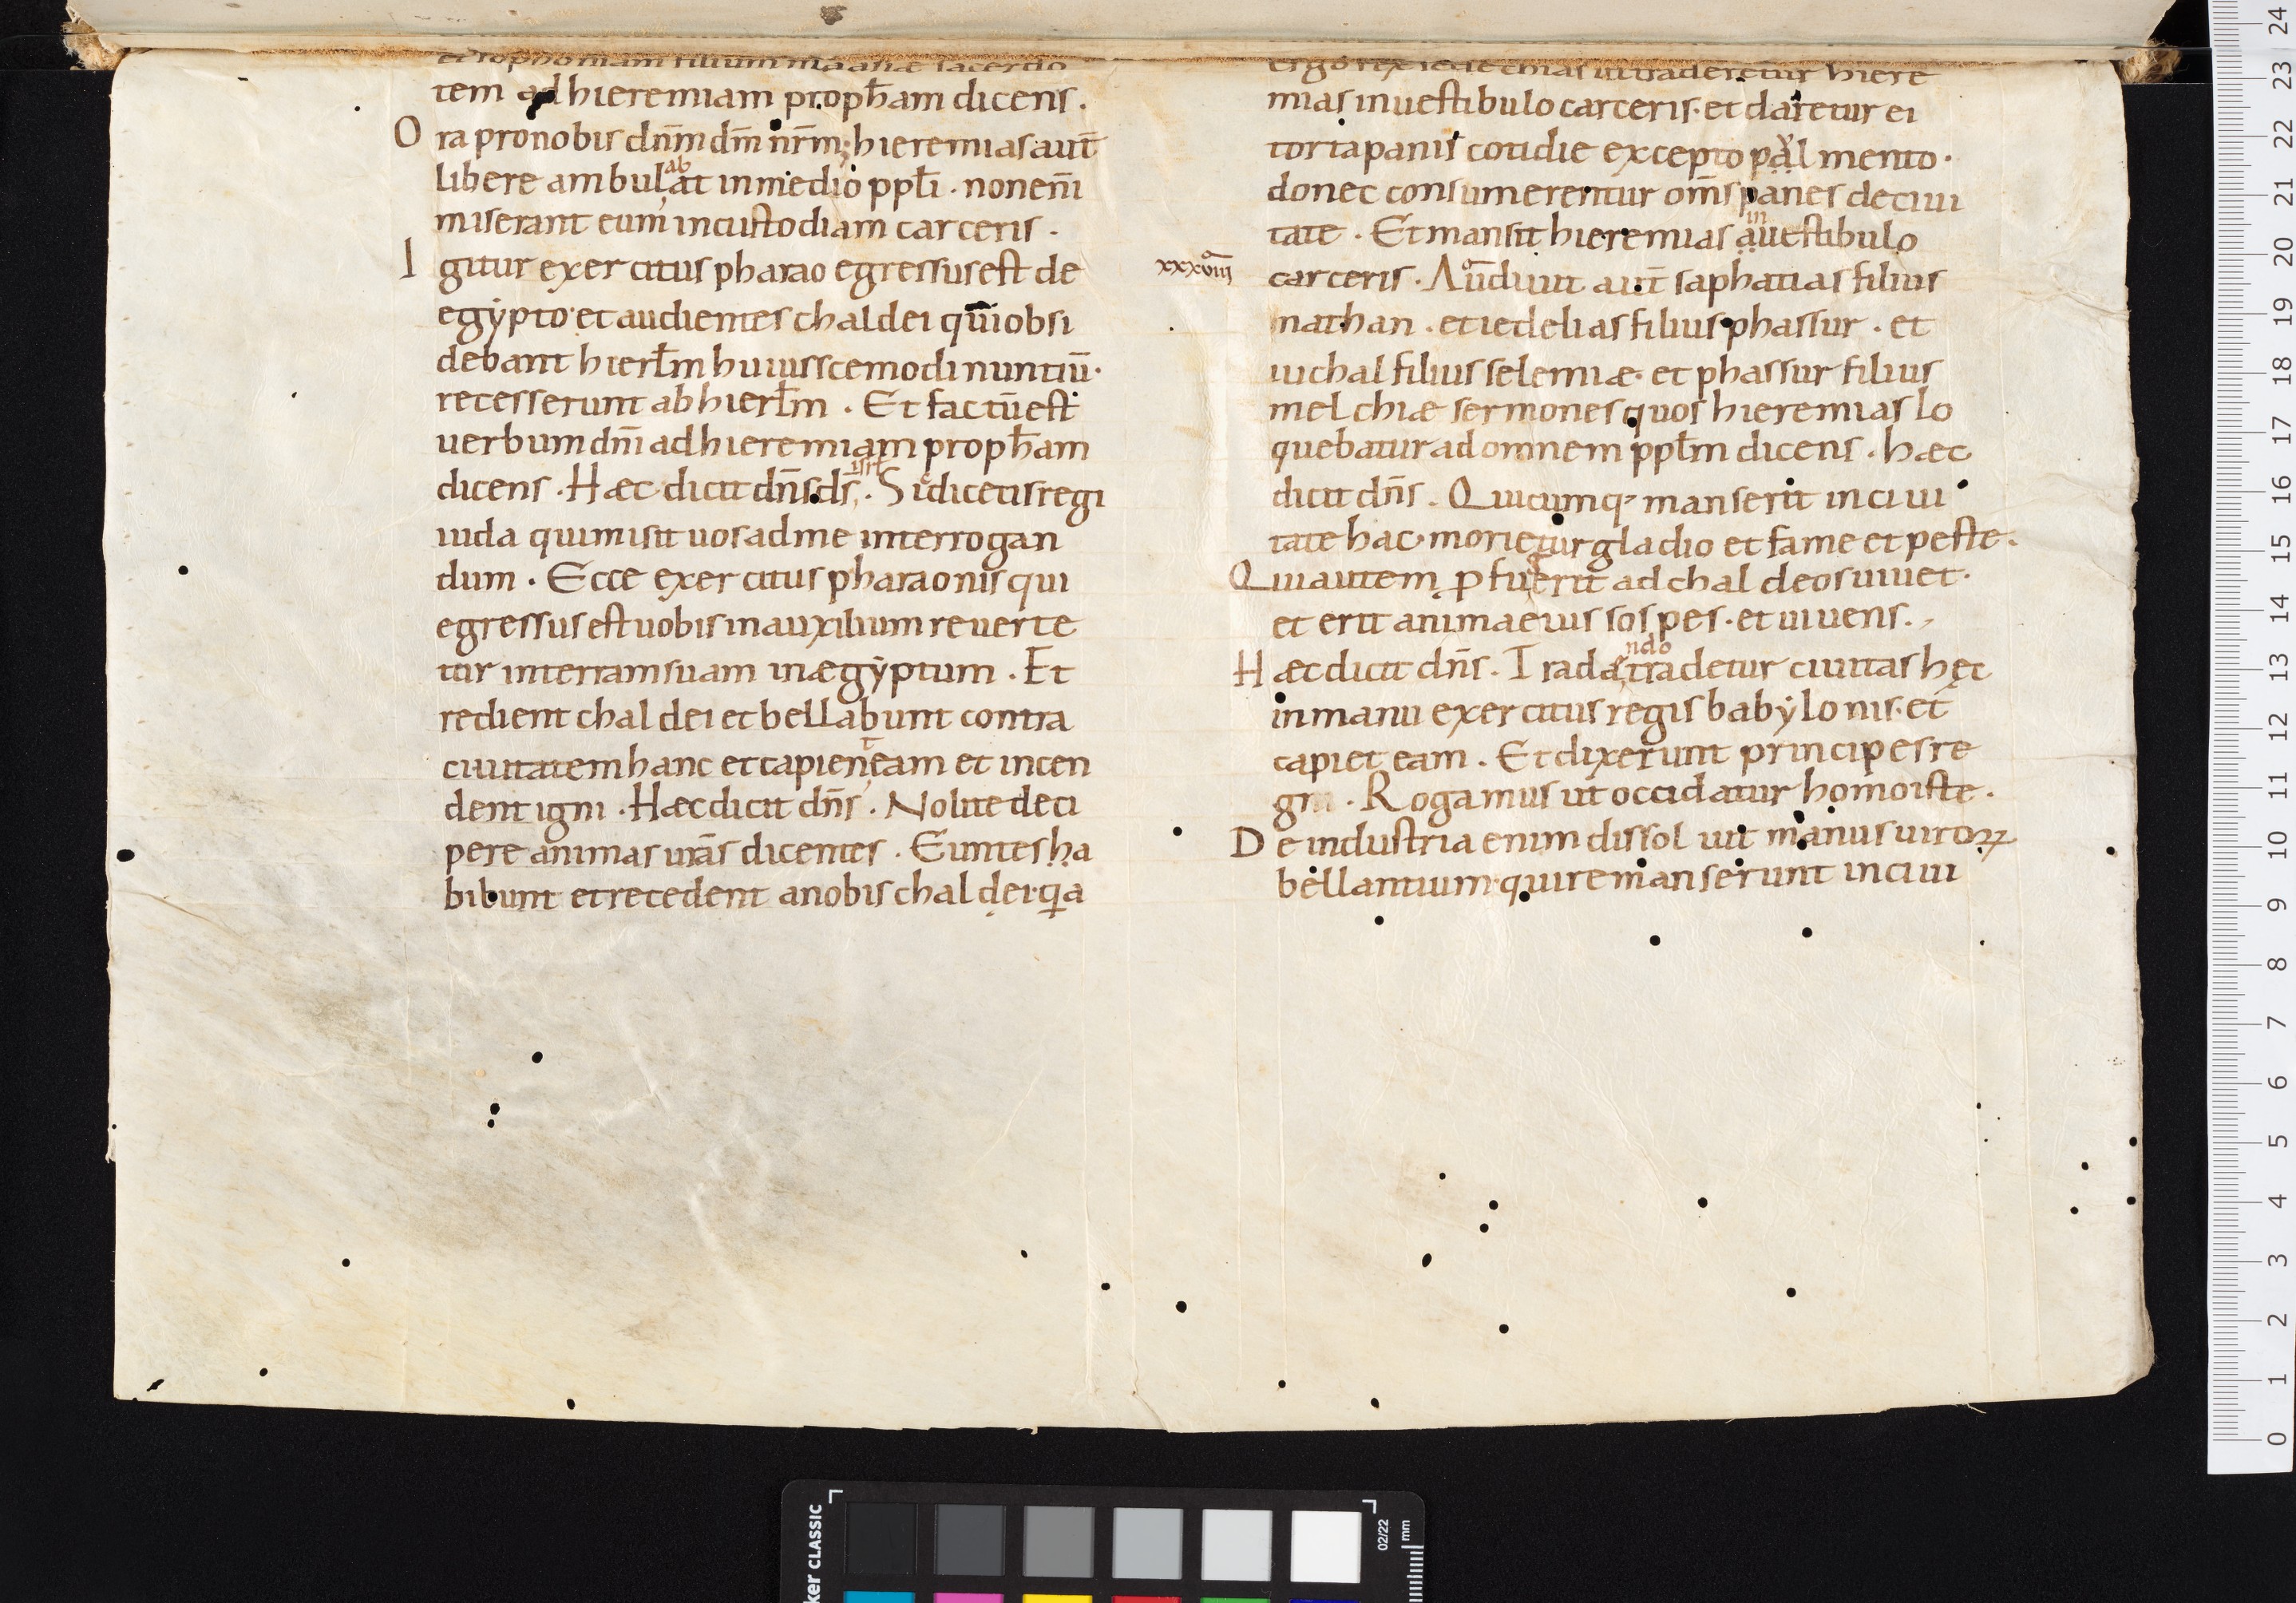 et sophoniam filium maasiæ sacerdo
tem ad hieremiam proph̄am dicens.
Ora pro nobis dn̄m dm̄ nr̄m; hieremias aut̄
ab
libere ambulat in medio ppl̄i. non eni̅
miserant eum in custodiam carceris.
Igitur exercitus pharao egressus est de
egẏpto. et audientes chaldei qui obsi
debant hierl̄m huiuscemodi nuntiū.
recesserunt ab hierl̄m. Et factū est
uerbum dn̄i ad hieremiam proph̄am
isrl̄
dicens. Hæc dicit dn̄s ds̄. Sic dicetis regi
iuda qui misit uos ad me interrogan
dum. Ecce exercitus pharaonis qui
egressus est uobis in auxilium reuerte
tur in terram suam in ægẏptum. Et
redient chaldei et bellabunt contra
t
ciuitatem hanc et capien eam et incen
dent igni. Hæc dicit dn̄s. Nolite deci
pere animas urās dicentes. Euntes ha
bibunt et recedent a nobis chaldei. quia
ergo rex sedechias ut traderetur hiere
mias in uestibulo carceris. et daretur ei
torta panis cotidie excepto pal mento.
donec consumerentur om̄s panes de ciui
in
tate. Et mansit hieremias a uestibulo
xxxviii carceris. Audiuit aut̄ saphatias filius
mathan. et iedelias filius phassur. et
iuchal filius selemiæ. et phassur filius
melchiæ sermones quos hieremias lo
quebatur ad omnem ppl̄m dicens. hæc
dicit dn̄s. Quicumq; manserit in ciui
tate hac. morietur gladio et fame et peste.
Qui autem ꝓfuerit ad chaldeos uiuet.
et erit anima eius sospes. et uiuens.
ndo
Hæc dicit dn̄s. Trada tradetur ciuitas hęc
in manu exercitus regis babẏlonis. et
capiet eam. Et dixerunt principes re
gi. Rogamus ut occidatur homo iste.
De industria enim dissoluit manus uiroꝝ
bellantium. qui remanserunt in ciui
24
23
22
21
20
19
18
17
16
15
14
13
12
11
10
9
8
7
6
5
4
3
2
1
0
ker CLASSIC
02/22
mm